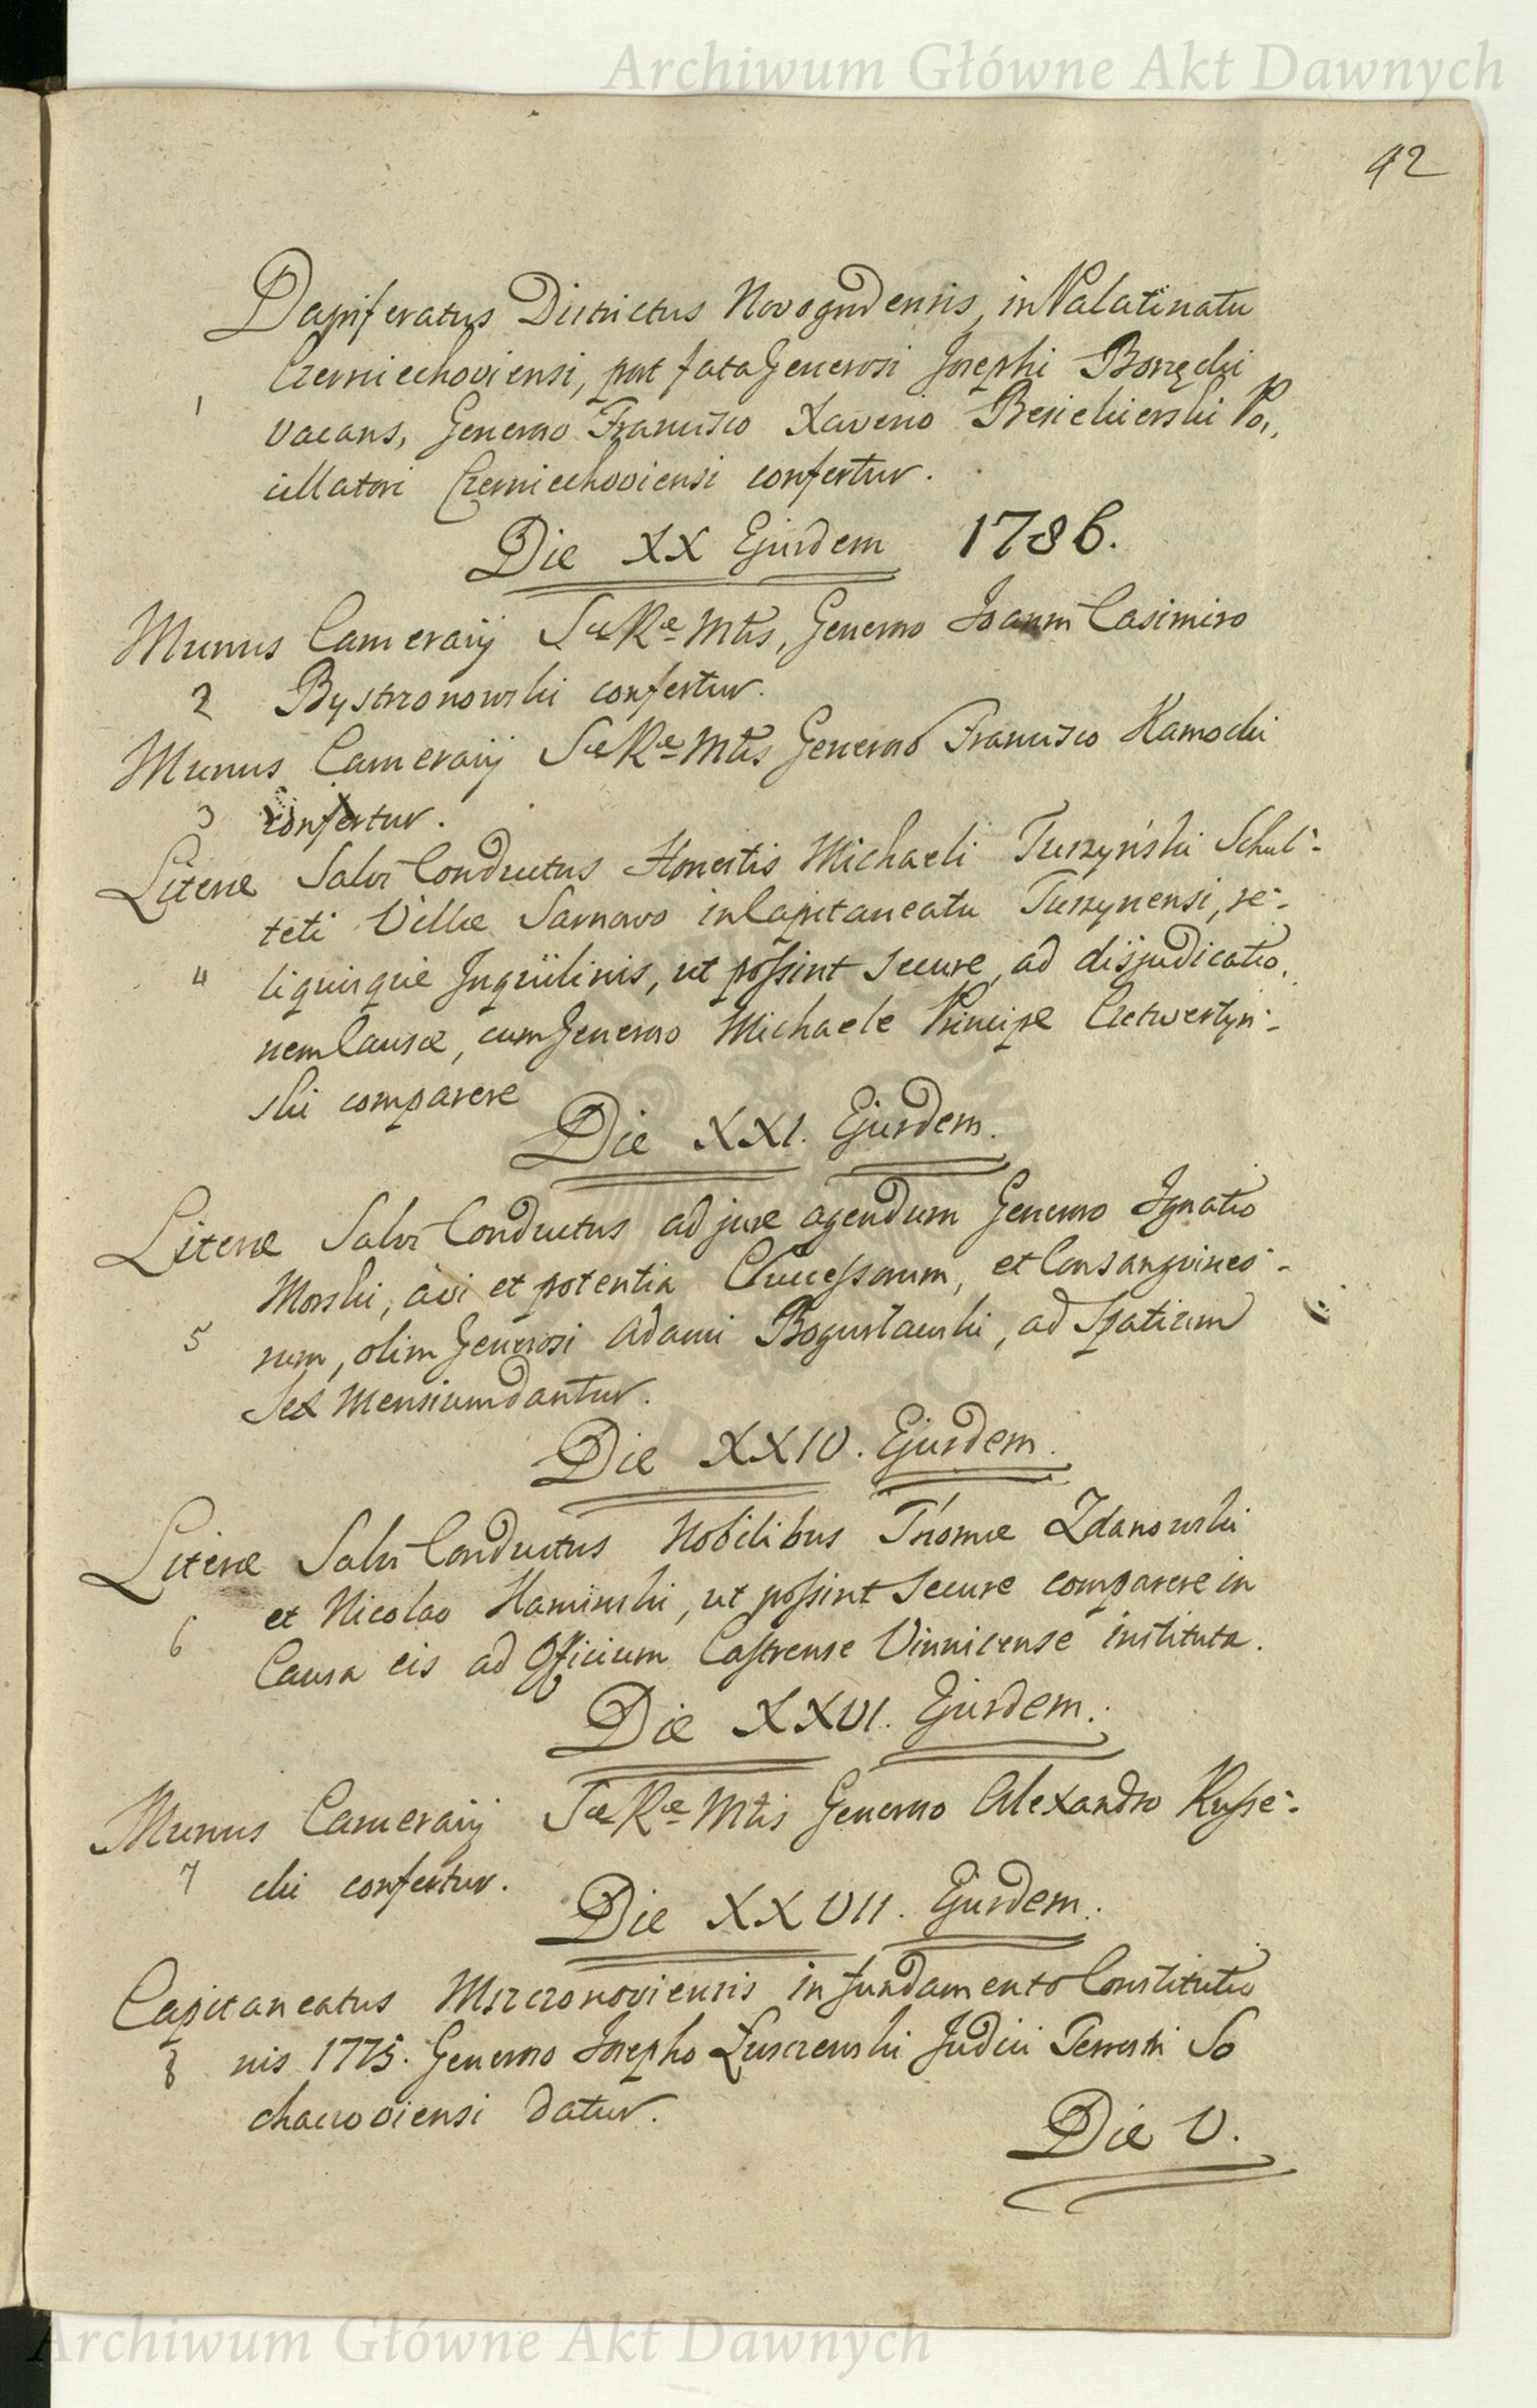 Archiwum Główne Akt Dawnych
92
Dapiferatus Districtus Novogrodensis, in Palatinatu
Czerniechoviensi, post fata Generosi Josephi Borzęcki
1
vacans, Generoso Francisco Xaverio Besiekierski Po,,
cillatori Czerniechoviensi confertur.
Die XX Ejusdem 1786.
Munus Camerarij Sae Rae Mtis, Generoso Joanni Casimiro
2 Bystrzonowski confertur.
Munus Camerarij Sae Rae Mtis Generoso Francisco Kamocki
3 confertur.
Literae Salvi Conductus Honestis Michaeli Tuszyński Schul-
teti Villae Sarnowo in Capitaneatu Tuszynensi, re-
4 liquisque Inquilinis, ut possint secure, ad disjudicatio,
nem Causae, cum Generoso Michaele Principe Czetwertyń-
ski comparere
Die XXI. Ejusdem.
Literae Salvi Conductus ad jure agendum Generoso Ignatio
Morski, avi et potentia Successorum, et Consangvineo-
5 rum, olim Generosi Adami Bogusławski, ad Spatium
Sex Mensium dantur.
Die XXIV. Ejusdem.
Literae Salvi Conductus Nobilibus Thomae Zdanowski
et Nicolao Kaminski, ut possint secure comparere in
6
Causa eis ad Officium Castrense Vinnicense instituta.
Die XXVI. Ejusdem.
Munus Camerarij Sae Rae Mtis Generoso Alexandro Russe-
7 cki confertur.
Die XXVII. Ejusdem.
Capitaneatus Mszczonoviensis in fundamento Constitutio
8 nis 1775. Generoso Josepho Łuszczewski Judici Terrestri So
chaczoviensi datur.
Die V.
Archiwum Główne Akt Dawnych